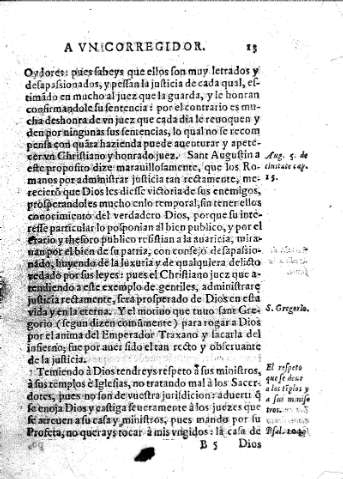 A VN CORREGIDOR. 13
Oydores: pues sabeys que ellos son muy letrados y
desapassionados, y pessan la justicia de cada qual, es-
timãdo en mucho al juez que la guarda, y le honran
confirmandole su sentencia: por el contrario es mu-
cha deshonra de vn juez que cada dia le reuoquen y
den por ningunas sus sentencias, lo qual no se recom
pensa con quãta hazienda puede auenturar y apete-
cer vn Christiano y honrado juez. Sant Augustin a
este proposito dize marauillosamente, que los Ro-
manos por administrar justicia tan rectamente, me-
recierõ que Dios les diesse victoria de sus enemigos,
prosperandoles mucho enlo temporal, sin tener ellos
conocimiento del verdadero Dios, porque su inte-
resse particular lo posponian al bien publico, y por el
erario y thesoro publico resistian a la auaricia, mira-
uan por el bien de su patria, con consejo desapassio-
nado, huyendo de la luxuria y de qualquiera delicto
vedado por sus leyes: pues el Christiano juez que a-
tendiendo a este exemplo de gentiles, administrare
justicia rectamente, será prosperado de Dios en esta
vida y en la eterna. Y el motiuo que tuuo sant Gre-
gorio (segun dizen comũmente) para rogar a Dios
por el anima del Emperador Traxano y sacarla del
infierno, fue por auer sido el tan recto y obseruante
de la justicia.
Temiendo à Dios tendreys respeto à sus ministros,
à sus templos è Iglesias, no tratando mal à los Sacer-
dotes, pues no son de vuestra jurisdicion: aduerti q̃
se enoja Dios y castiga seueramente à los juezes que
se atreuen a su casa y ministros, pues mando por su
Profeta, no querays tocar à mis vngidos: la casa de
B 5 Dios
Aug. 5. de
ciuitate cap.
15.
S. Gregorio.
El respeto
que se deue
a los
a sus minis-
tros.
Psal. 104.